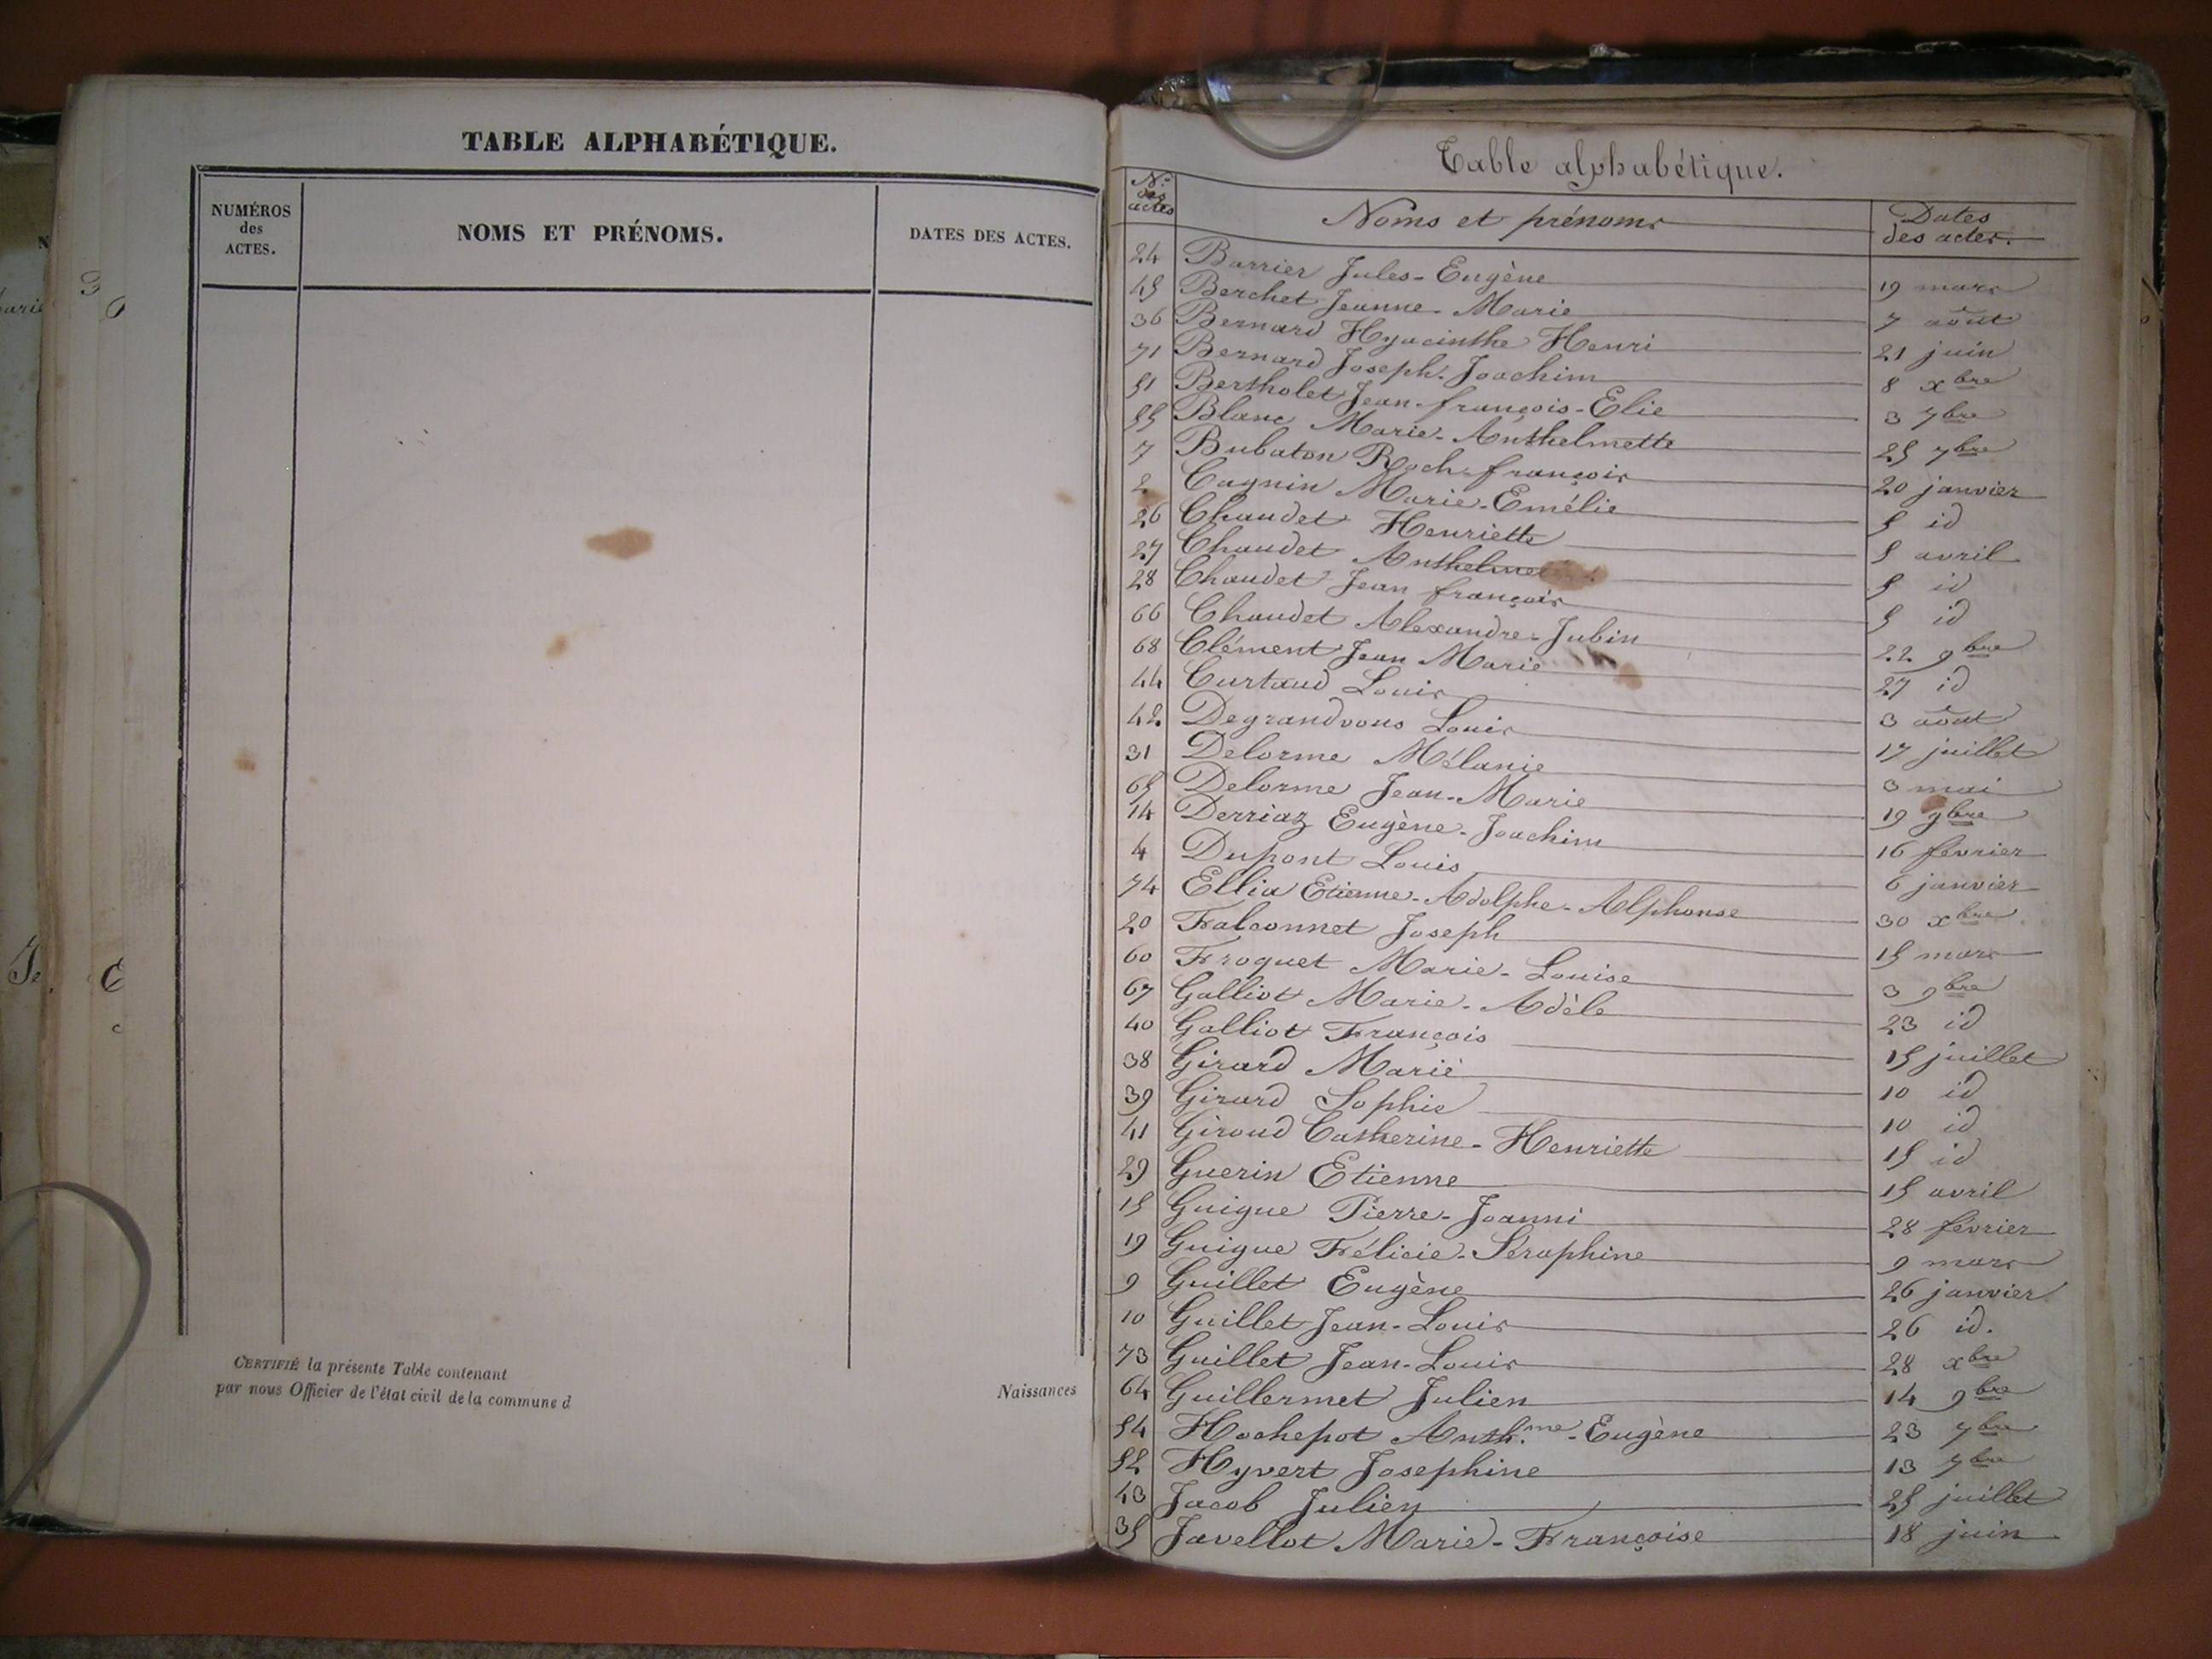 TABLE ALPHABÉTIQUE.
NUMÉROS des ACTES. NOMS ET PRÉNOMS. DATES DES ACTES.
CERTIFIÉ la présente Table contenant Naissances
par nous Officier de l'état civil de la commune d
Table alphabétique.
Nos des actes Noms et prénoms Dates des actes.
24 Barrier Jules-Eugène 19 mars
45 Berchet Jeanne-Marie 7 août
36 Bernard Hyacinthe Henri 21 juin
71 Bernard Joseph-Joachim 8 xbre
51 Bertholet Jean-françois-Elie 3 7bre
55 Blanc Marie-Anthelmette 25 7bre
7 Bubaton Roch-françois 20 janvier
2 Cagnin Marie-Emélie 5 id
26 Chaudet Henriette 5 avril
27 Chaudet Anthelme 5 id
28 Chaudet Jean françois 5 id
66 Chaudet Alexandre-Jubin 22 9bre
68 Clément Jean Marie 27 id
44 Curtaud Louis 3 août
42 Degrandvous Louis 17 juillet
31 Delorme Mélanie 3 mai
65 Delorme Jean-Marie 19 9bre
14 Derriaz Eugène-Joachim 16 février
4 Dupont Louis 6 janvier
74 Ellia Etienne-Adolphe-Alphonse 30 xbre
20 Falconnet Joseph 15 mars
60 Froquet Marie-Louise 3 9bre
67 Galliot Marie-Adèle 23 id
40 Galliot François 15 juillet
38 Girard Marie 10 id
39 Girard Sophie 10 id
41 Giroud Catherine-Henriette 15 id
29 Guerin Etienne 15 avril
15 Guigue Pierre-Joanni 28 février
19 Guigue Félicie-Séraphine 9 mars
9 Guillet Eugène 26 janvier
10 Guillet Jean-Louis 26 id.
73 Guillet Jean-Louis 28 xbre
64 Guillermet Julien 14 9bre
54 Hochepot Anth.me-Eugène 23 7bre
52 Hyvert Josephine 13 7bre
43 Jacob Julien 25 juillet
35 Javellot Marie-Françoise 18 juin